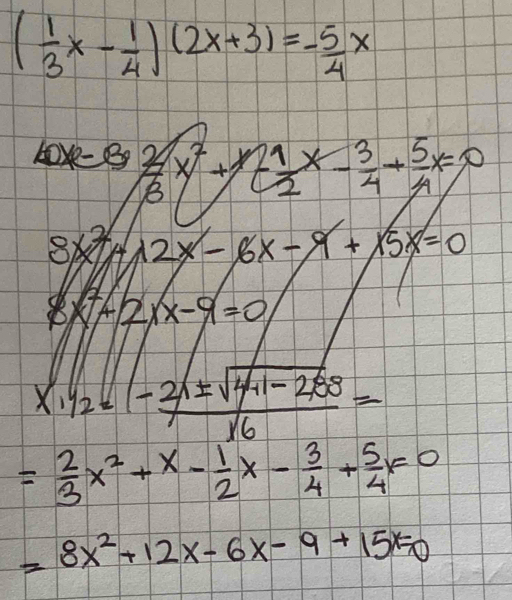 (1/3 x - 1/4) (2x+3) = -5/4 x
2/3 x² + x - 1/2 x - 3/4 + 5/4 x = 0
8x² + 12x - 6x - 9 + 15x = 0
8x² + 21x - 9 = 0
x 1/2 = (-21 ± √(441 - 288))/16 =
= 2/3 x² + x - 1/2 x - 3/4 + 5/4 x = 0
= 8x² + 12x - 6x - 9 + 15x = 0